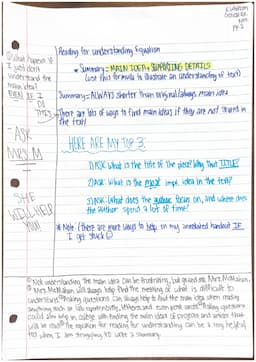 Reading for understanding Equation
* Summary = MAIN IDEA + SUPPORTING DETAILS
(use this formula to illustrate an understanding of text)
Summary = ALWAYS shorter than original/always main idea
There are lots of ways to find main ideas if they are not stated in the text!
HERE ARE MY TOP 3:
1) ASK: What is the title of the piece? Why that TITLE?
2) ASK: What is the most impt. idea in the text?
3) ASK: What does the author focus on, and where does
the author spend a lot of time?
* Note: (there are more ways to help in my annotated handout IF
I get stuck
① What happens if
I just don't
understand the
main idea?
EVEN IF I
DO
THIS
-ASK
MRS. M
SHE
WILL HELP
YOU!
Not understanding the main idea can be frustrating, but
Mrs. McMahon will always help find the meaning of what is difficult to
understand. Asking questions can always help to find the main idea when reading
anything such as
could also help in college with finding the main idea of
will be read! The equation for reading for understanding can be a key helpful
too when I am struggling to write a summary.